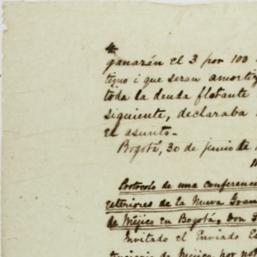 ganarán el 3 por 100
i que seran amorti
toda la deuda flotante
siguiente, declaraba
el asunto.
Bogotá, 30 de junio de
Protocolo de una conferenc
esteriores de la Nueva Gran
de Méjico en Bogotá, Don
Invitado el Enviado E
de Méjico por not